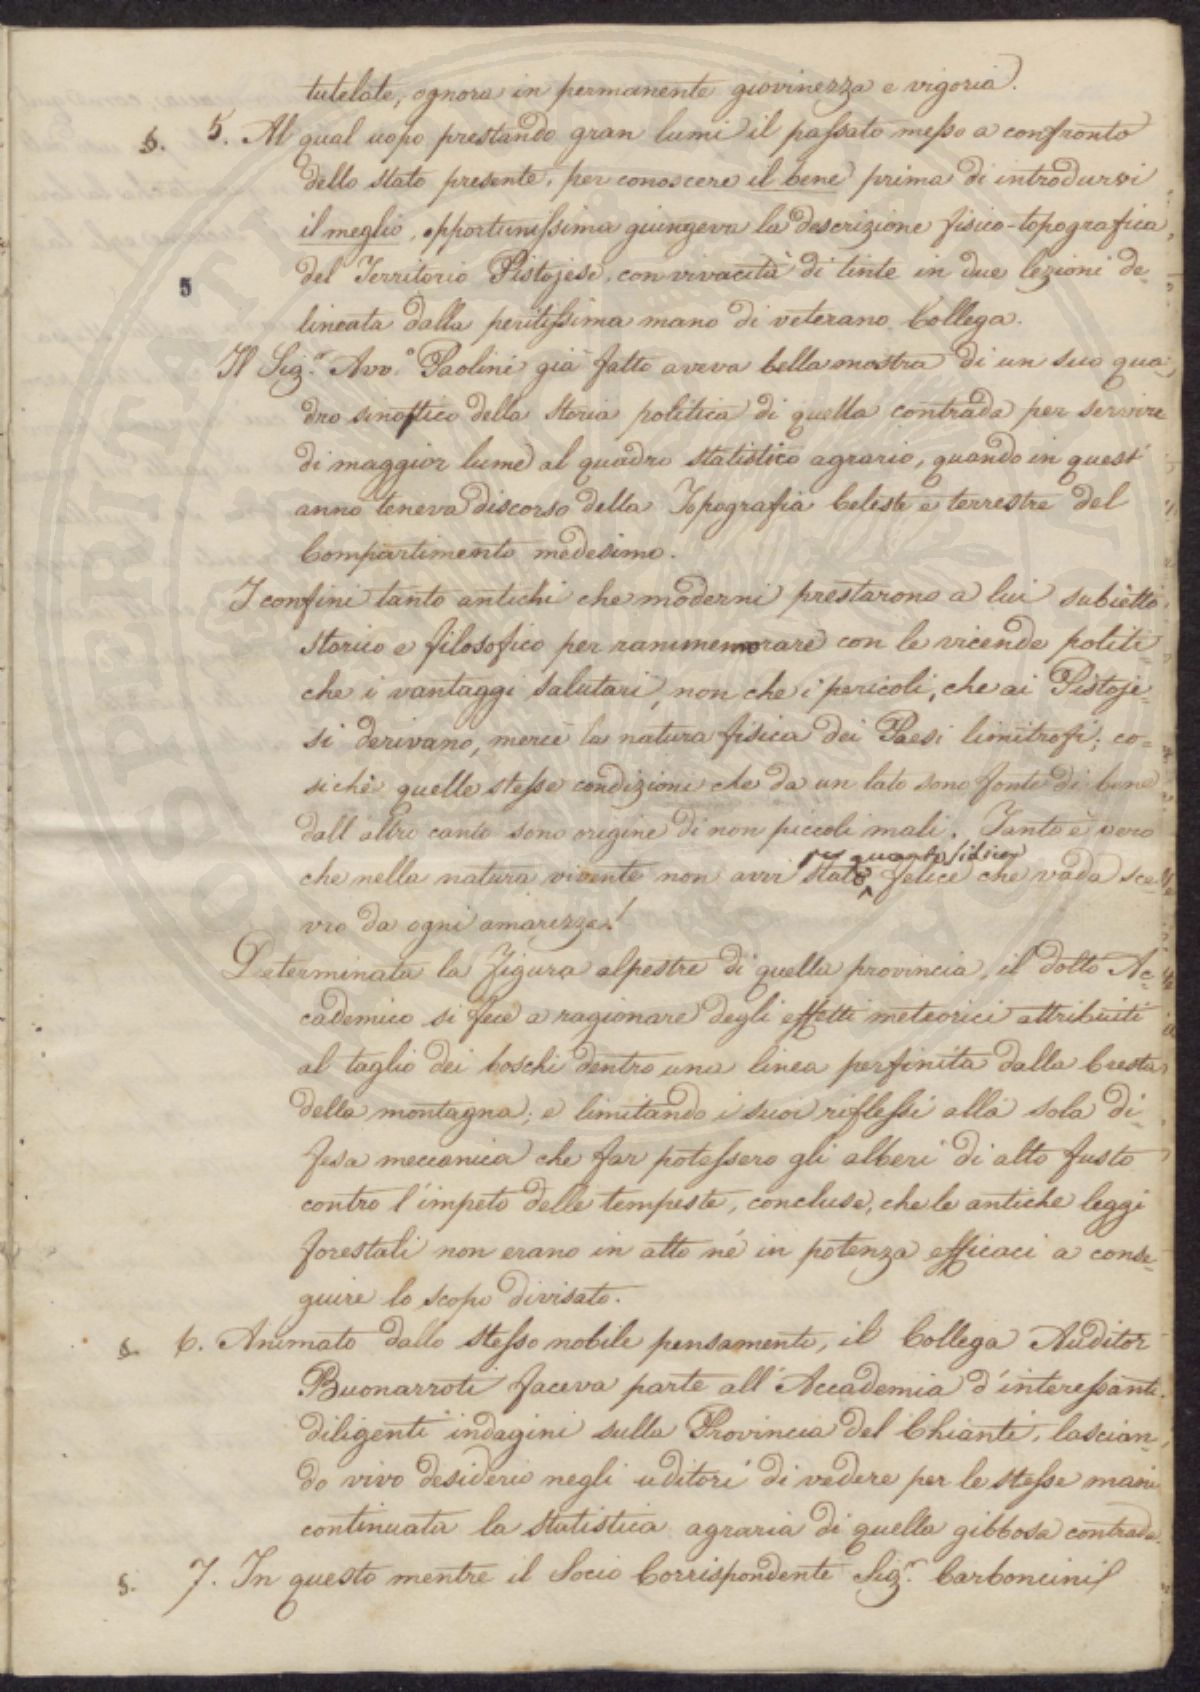 tutelate, ognora in permanente giovinezza e vigoria.
§. 5. Al qual uopo prestando gran lumi il passato messo a confronto
dello stato presente, per conoscere il bene prima di introdurvi
il meglio, opportunissima giungeva la descrizione fisico-topografica
del Territorio Pistojese, con vivacità di tinte in due lezioni de-
5
lineata dalla peritissima mano di veterano Collega.
Il Sig.r Avv.o Paolini già fatto aveva bella mostra di un suo qua-
dro sinottico della storia politica di quella contrada per servire
di maggior lume al quadro statistico agrario, quando in quest'
anno teneva discorso della Topografia Celeste e terrestre del
Compartimento medesimo.
I confini tanto antichi che moderni prestarono a lui subietto
storico e filosofico per rammemorare con le vicende politi-
che i vantaggi salutari, non che i pericoli, che ai Pistoje-
si derivano, mercè la natura fisica dei Paesi limitrofi; co-
sichè quelle stesse condizioni che da un lato sono fonte di bene
dall'altro canto sono origine di non piccoli mali. Tanto è vero
per quanto si dica
che nella natura vivente non avvi stato felice che vada sce-
vro da ogni amarezza!
Determinata la figura alpestre di quella provincia, il dotto Ac-
cademico si fece a ragionare degli effetti meteorici attribuiti
al taglio dei boschi dentro una linea perfinita dalla Cresta
della montagna; e limitando i suoi riflessi alla sola di-
fesa meccanica che far potessero gli alberi di alto fusto
contro l'impeto delle tempeste, concluse, che le antiche leggi
forestali non erano in atto nè in potenza efficaci a conse-
guire lo scopo divisato.
§. 6. Animato dallo stesso nobile pensamento, il Collega Auditor
Buonarroti faceva parte all'Accademia d'interessanti
diligenti indagini sulla Provincia del Chianti, lascian-
do vivo desiderio negli uditori di vedere per le stesse mani
continuata la statistica agraria di quella gibbosa contrada.
§. 7. In questo mentre il Socio Corrispondente Sig.r Carboncini